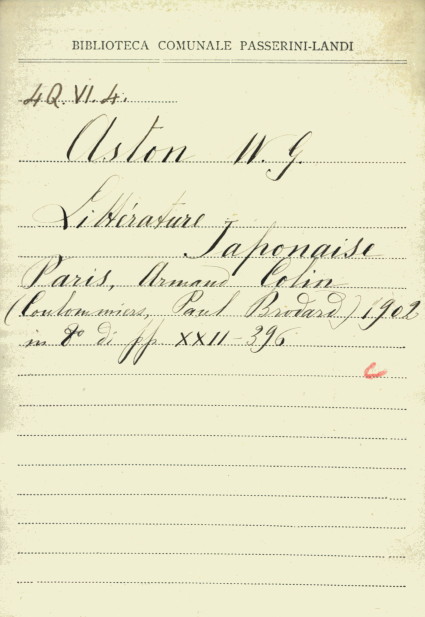 BIBLIOTECA COMUNALE PASSERINI-LANDI
4Q.VI.4.
Aston W. G.
Littérature
Japonaise
Paris, Armand Colin
(Coulommiers, Paul Brodard) 1902
in 8º di pp XXII-396
C